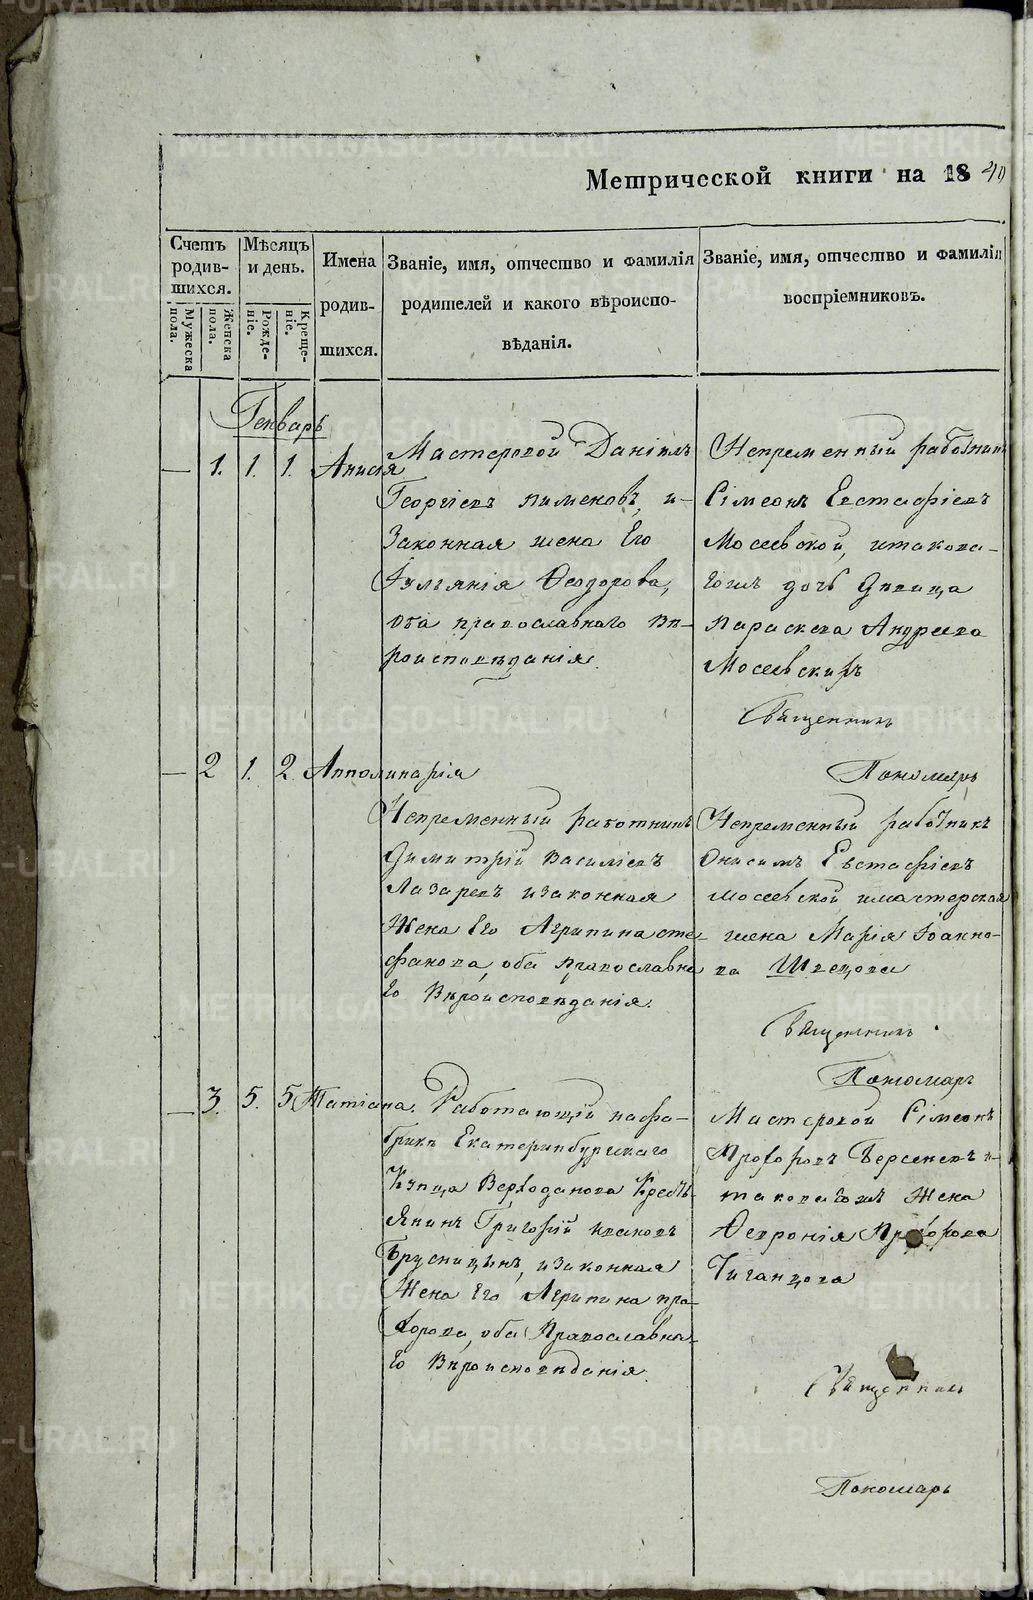 Метрической книги на 1840
Счетъ родившихся.
Мужеска пола.
Женска пола.
Мѣсяцъ и день.
Рожденіе.
Крещеніе.
Имена родившихся.
Званіе, имя, отчество и фамилія
родителей и какого вѣроиспо-
вѣданія.
Званіе, имя, отчество и фамилія
воспріемниковъ.
Генварь
— 1. 1. 1. Анисія
Мастеровой Даніилъ
Георгіевъ Пименовъ, и
Законная жена Его
Іуліянія Ѳеодорова,
оба православнаго вѣ-
роисповѣданія.
Непременный работникъ
Сімеонъ Евстафіевъ
Мосеевской, итакова-
гожъ дочь Девица
Параскева Андреева
Мосеевскихъ
Священникъ
Пономарь
— 2 1. 2 Апполинарія
Непременный работникъ
Димитрій Василіевъ
Лазаревъ изаконная
Жена Его Агрипина сте-
фанова, оба православна
го Вѣроисповѣданія.
Непременный работникъ
Онисимъ Евстафіевъ
мосеевской имастерская
жена Марія Іоанно-
ва Швецова
Священникъ
Пономарь
— 3. 5. 5 Татіана.
Работающій нафа-
брикѣ Екатеринбургскаго
Купца Верходанова Кресть-
Янинъ Григорій Иваковъ
Брусницынъ, изаконная
Жена Его Агрипина про-
хорова, оба Православна-
го Вѣроисповѣданія.
Мастеровой Сімеонъ
Прохоровъ Берсеневъ и-
таковагожъ Жена
Ѳевронія Прохорова
Чиганцова
Священникъ
Пономарь
METRIKI.GASO-URAL.RU